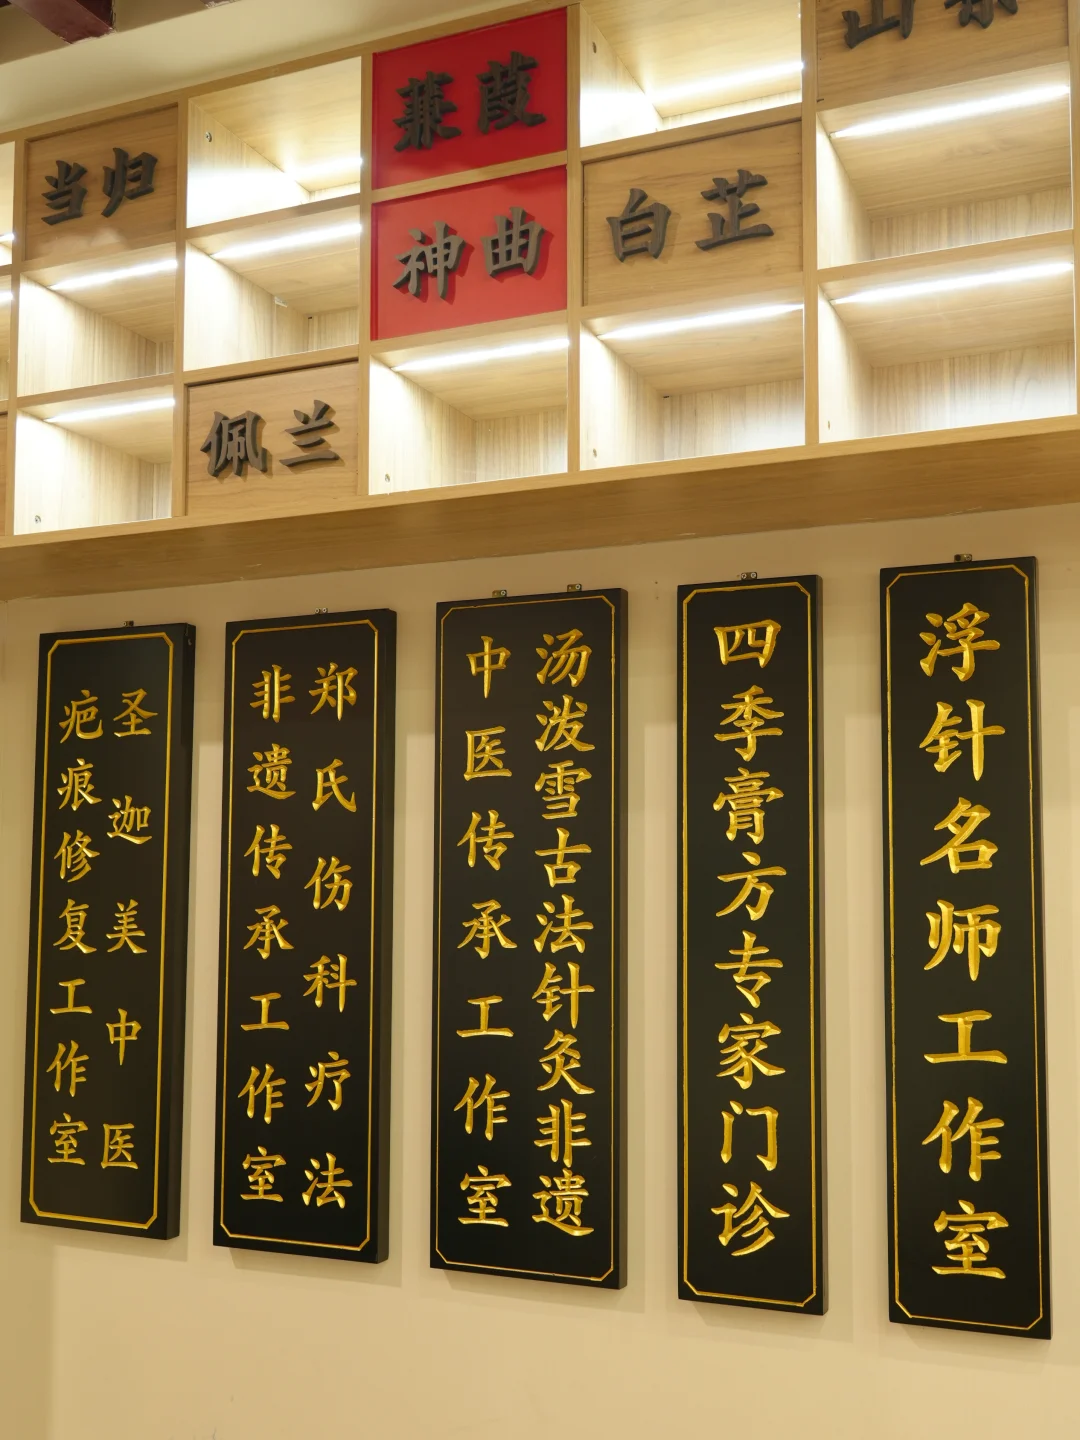 当归
蒹葭
神曲
白芷
佩兰
圣迦美中医
疤痕修复工作室
郑氏伤科疗法
非遗传承工作室
汤泼雪古法针灸非遗
中医传承工作室
四季膏方专家门诊
浮针名师工作室